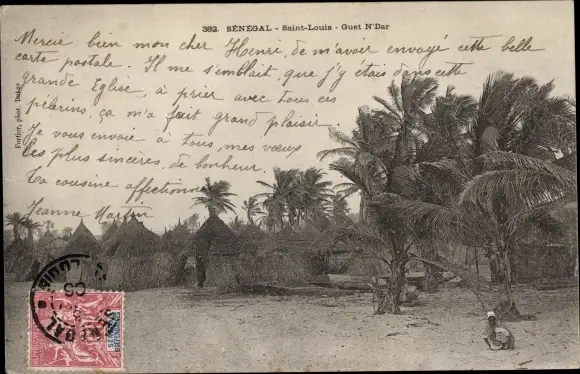 382. SÉNÉGAL - Saint-Louis - Guet N'Dar
Mercie bien mon cher Henri, de m'avoir envoyé cette belle
carte postale. Il me s'emblait, que j'y étais dans cette
grande Eglise, à prier avec tous ces
pélerins, ça m'a fait grand plaisir.
Je vous envoie à tous, mes vœux
les plus sincères, de bonheur.
Ta cousine affectionné
Jeanne Martin
Fortier, phot. Dakar
SÉNÉGAL